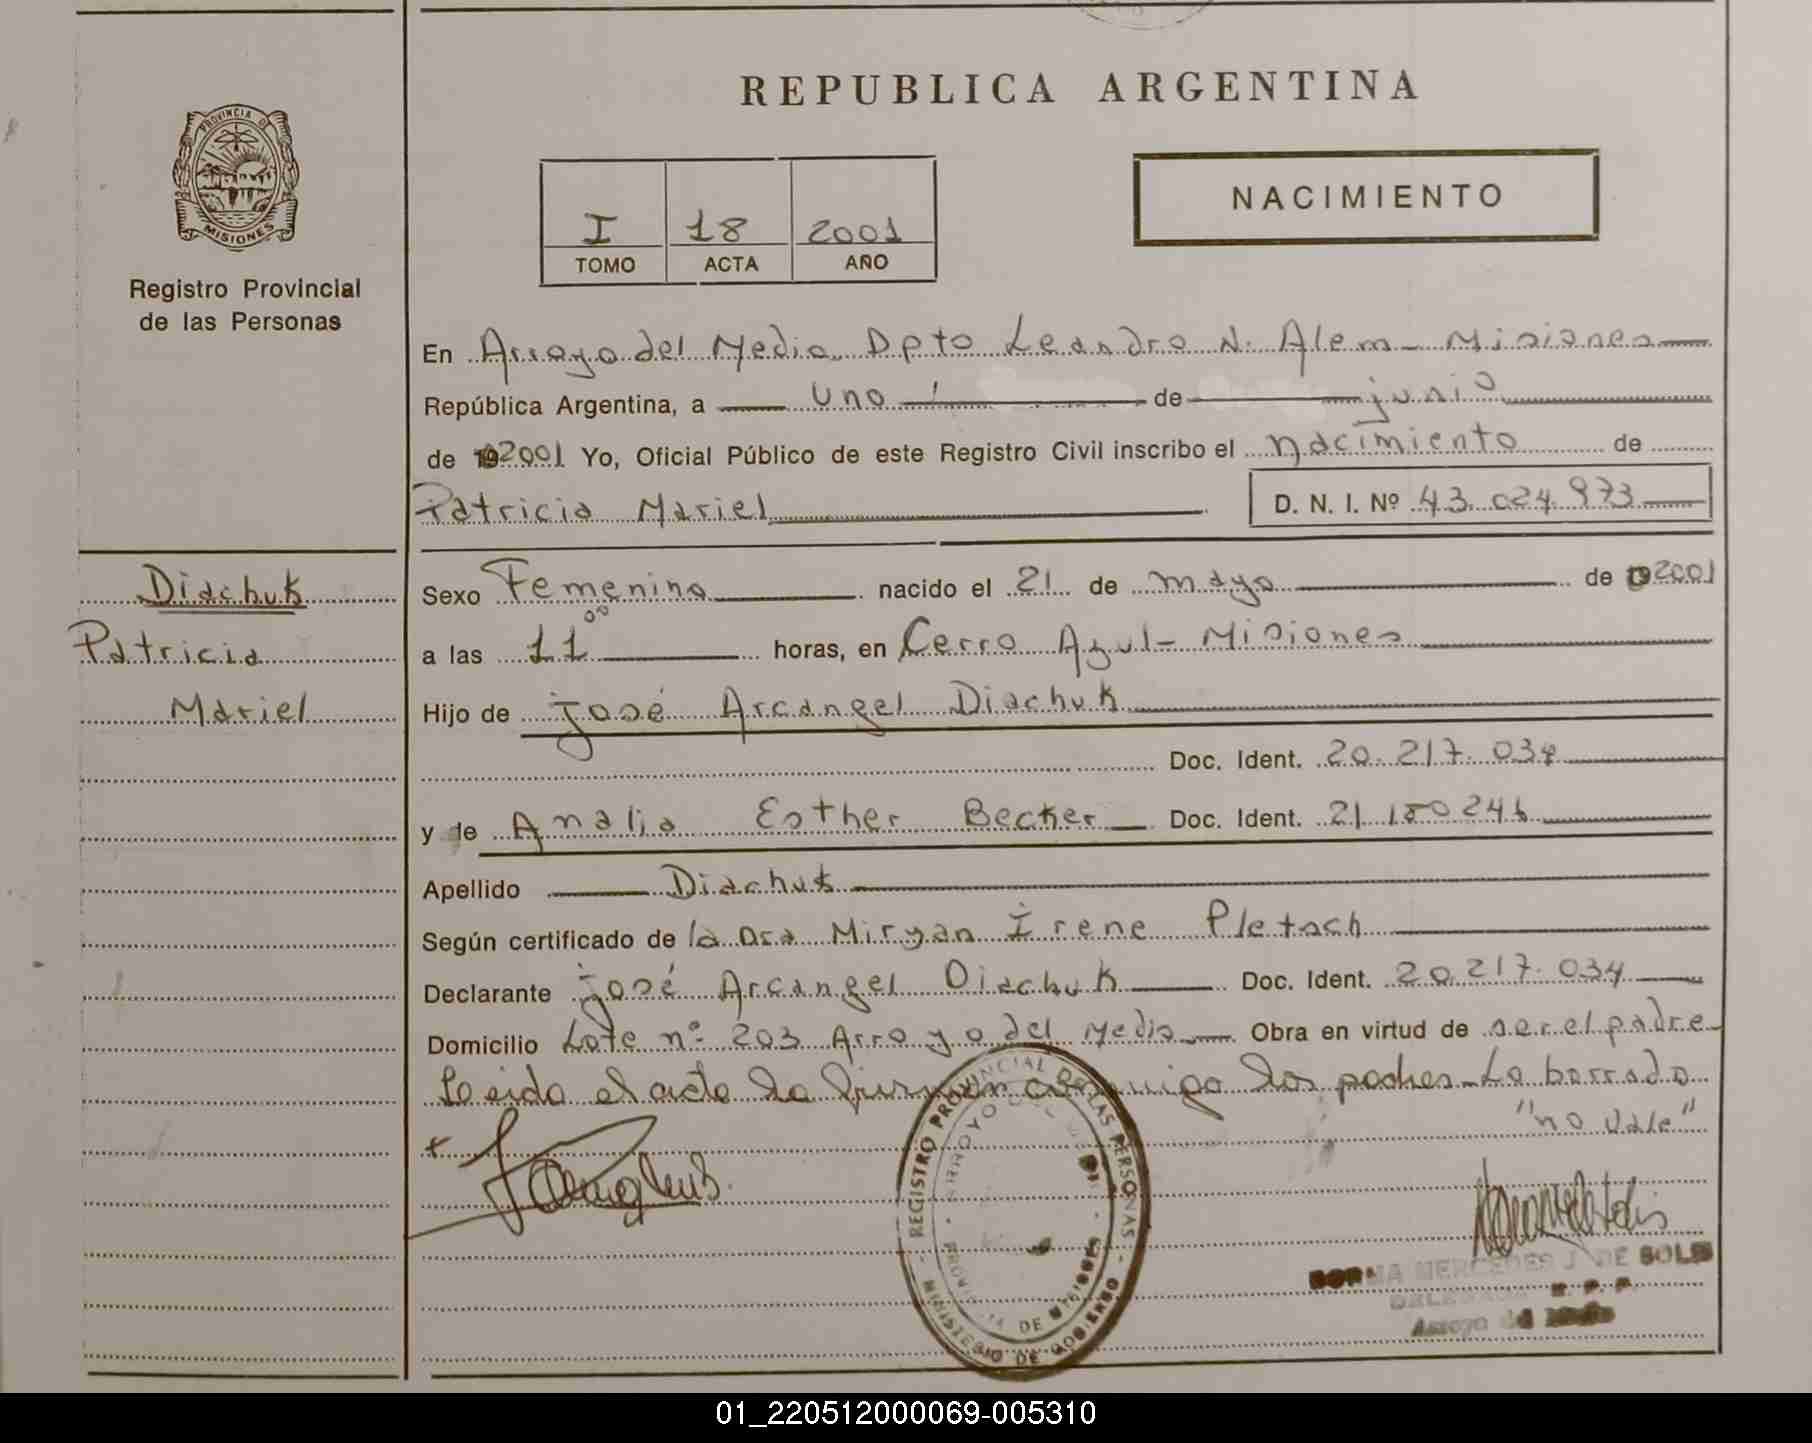 REPUBLICA ARGENTINA
PROVINCIA D
MISIONES
Registro Provincial
de las Personas
I 18 2001
TOMO ACTA AÑO
NACIMIENTO
En Arroyo del Medio Dpto Leandro N. Alem - Misiones
República Argentina, a uno de junio
de 2001 Yo, Oficial Público de este Registro Civil inscribo el nacimiento de
Patricia Mariel D. N. I. Nº 43.024.973
Diachuk
Patricia
Mariel
Sexo Femenino nacido el 21 de mayo de 2001
a las 11⁰⁰ horas, en Cerro Azul - Misiones
Hijo de José Arcangel Diachuk
Doc. Ident. 20.217.034
y de Analia Esther Becker Doc. Ident. 21.180246
Apellido Diachuk
Según certificado de la Dra Miryan Irene Pletsch
Declarante José Arcangel Diachuk Doc. Ident. 20.217.034
Domicilio Lote nº 203 Arroyo del Medio Obra en virtud de ser el padre
Leida el acta la firman conmigo los padres - Lo borrado
"no vale"
REGISTRO PROVINCIAL DE LAS PERSONAS
MINISTERIO DE GOBIERNO
ARROYO DEL
PROVINCIA DE MISIONES
NORMA MERCEDES J. DE SOLIS
R. P. P.
Arroyo del Medio
01_220512000069-005310